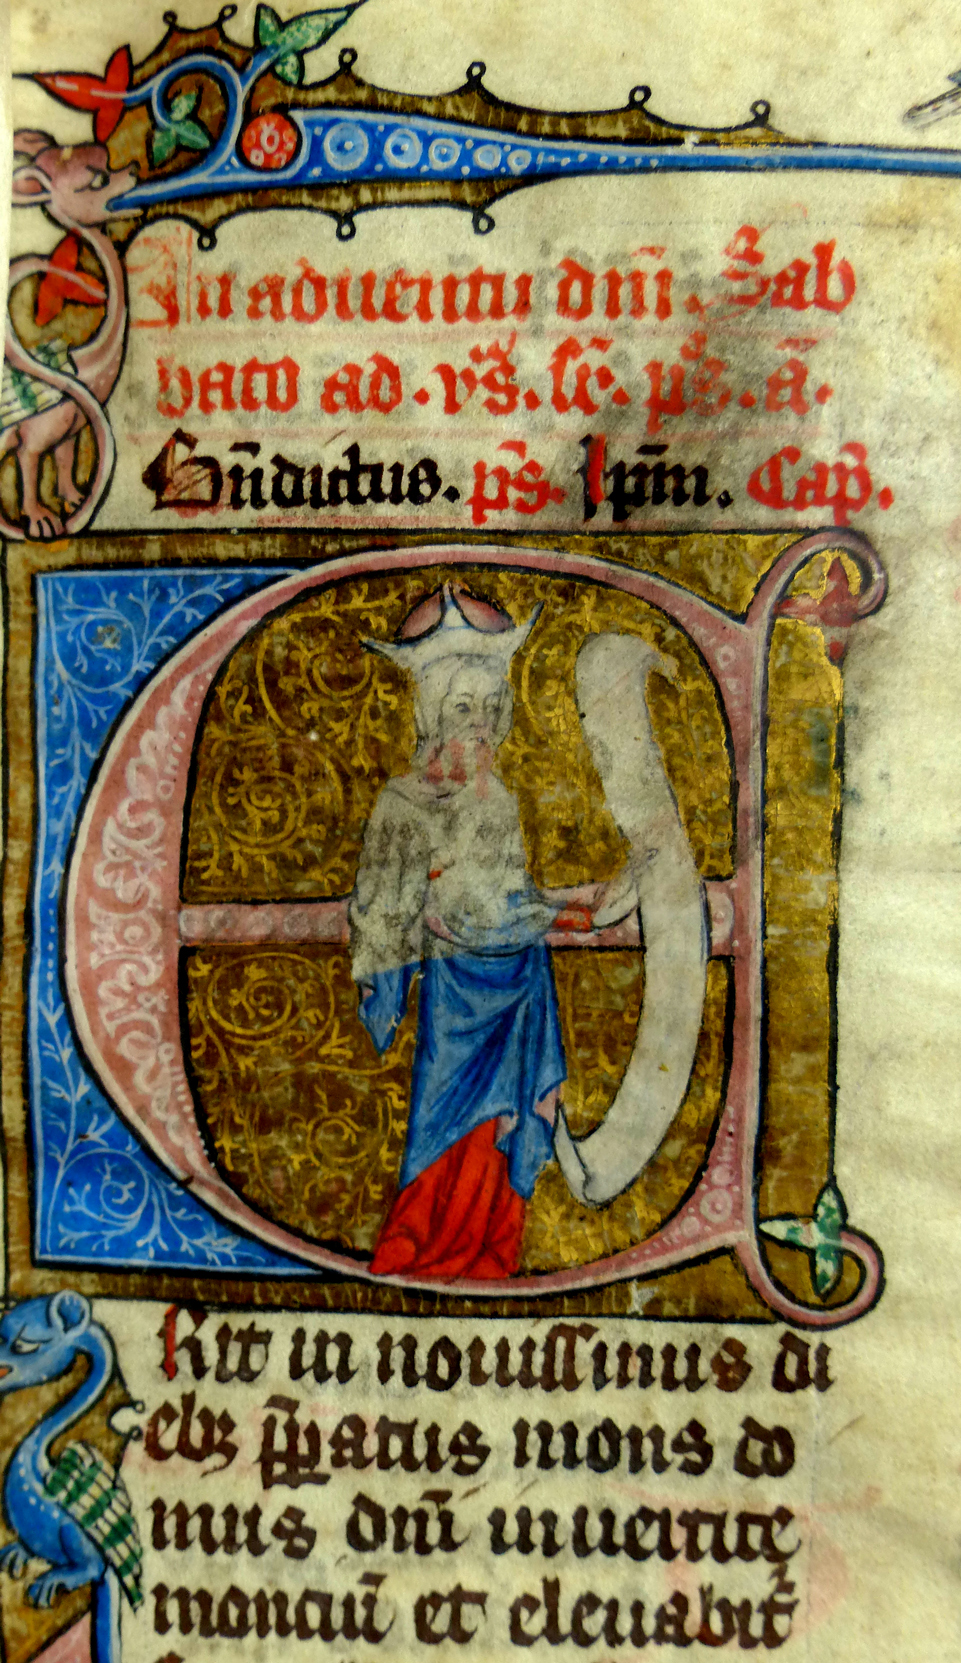 In aduentu dnī. Sab
bato ad. vs̄. sr̄. ps̄. ā.
Bn̄dictus. ps̄. Ipm̄. Cap̄.
E
Rit in nouissimus di
ebꝫ p̄patus mons do
mus dnī in uertice
montiū et eleuabit᷑